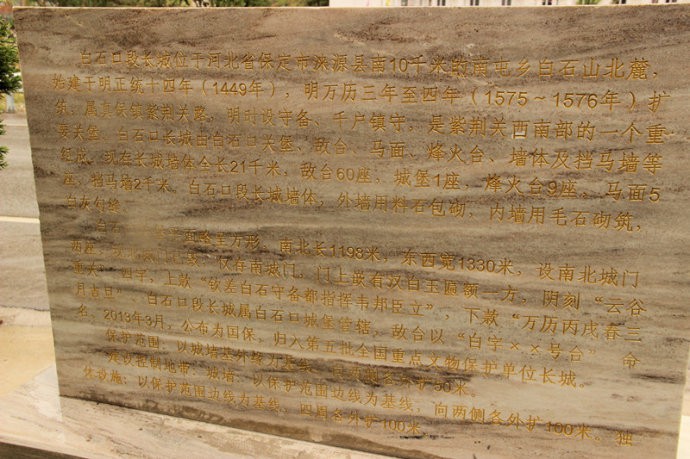 白石口段长城位于河北省保定市涞源县南10千米的南屯乡白石山北麓，
始建于明正统十四年（1449年），明万历三年至四年（1575～1576年）扩
筑，属真保镇紫荆关路，明时设守备、千户镇守，是紫荆关西南部的一个重
要关堡。白石口长城由白石口关堡、敌台、马面、烽火台、墙体及挡马墙等
组成，现存长城墙体全长21千米，敌台60座，城堡1座，烽火台9座，马面5
座，挡马墙2千米。白石口段长城墙体，外墙用料石包砌，内墙用毛石砌筑，
白灰勾缝。
白石 方形，南北长1198米，东西宽1330米，设南北城门
两座 仅存南城门，门上嵌有汉白玉匾额一方，阴刻“云谷
四字，上款“钦差白石守备都指挥韦邦臣立”，下款“万历丙戌春三
月吉旦”。白石口段长城属白石口城堡管辖，敌台以“白字××号台”命
名。2013年3月，公布为国保，归入第五批全国重点文物保护单位长城。
保护范围：以城墙基外缘为基线，
建设控制地带：城墙：以保护范围边线为基线，向两侧各外扩100米。独
体设施：以保护范围边线为基线，四周各外扩100米。